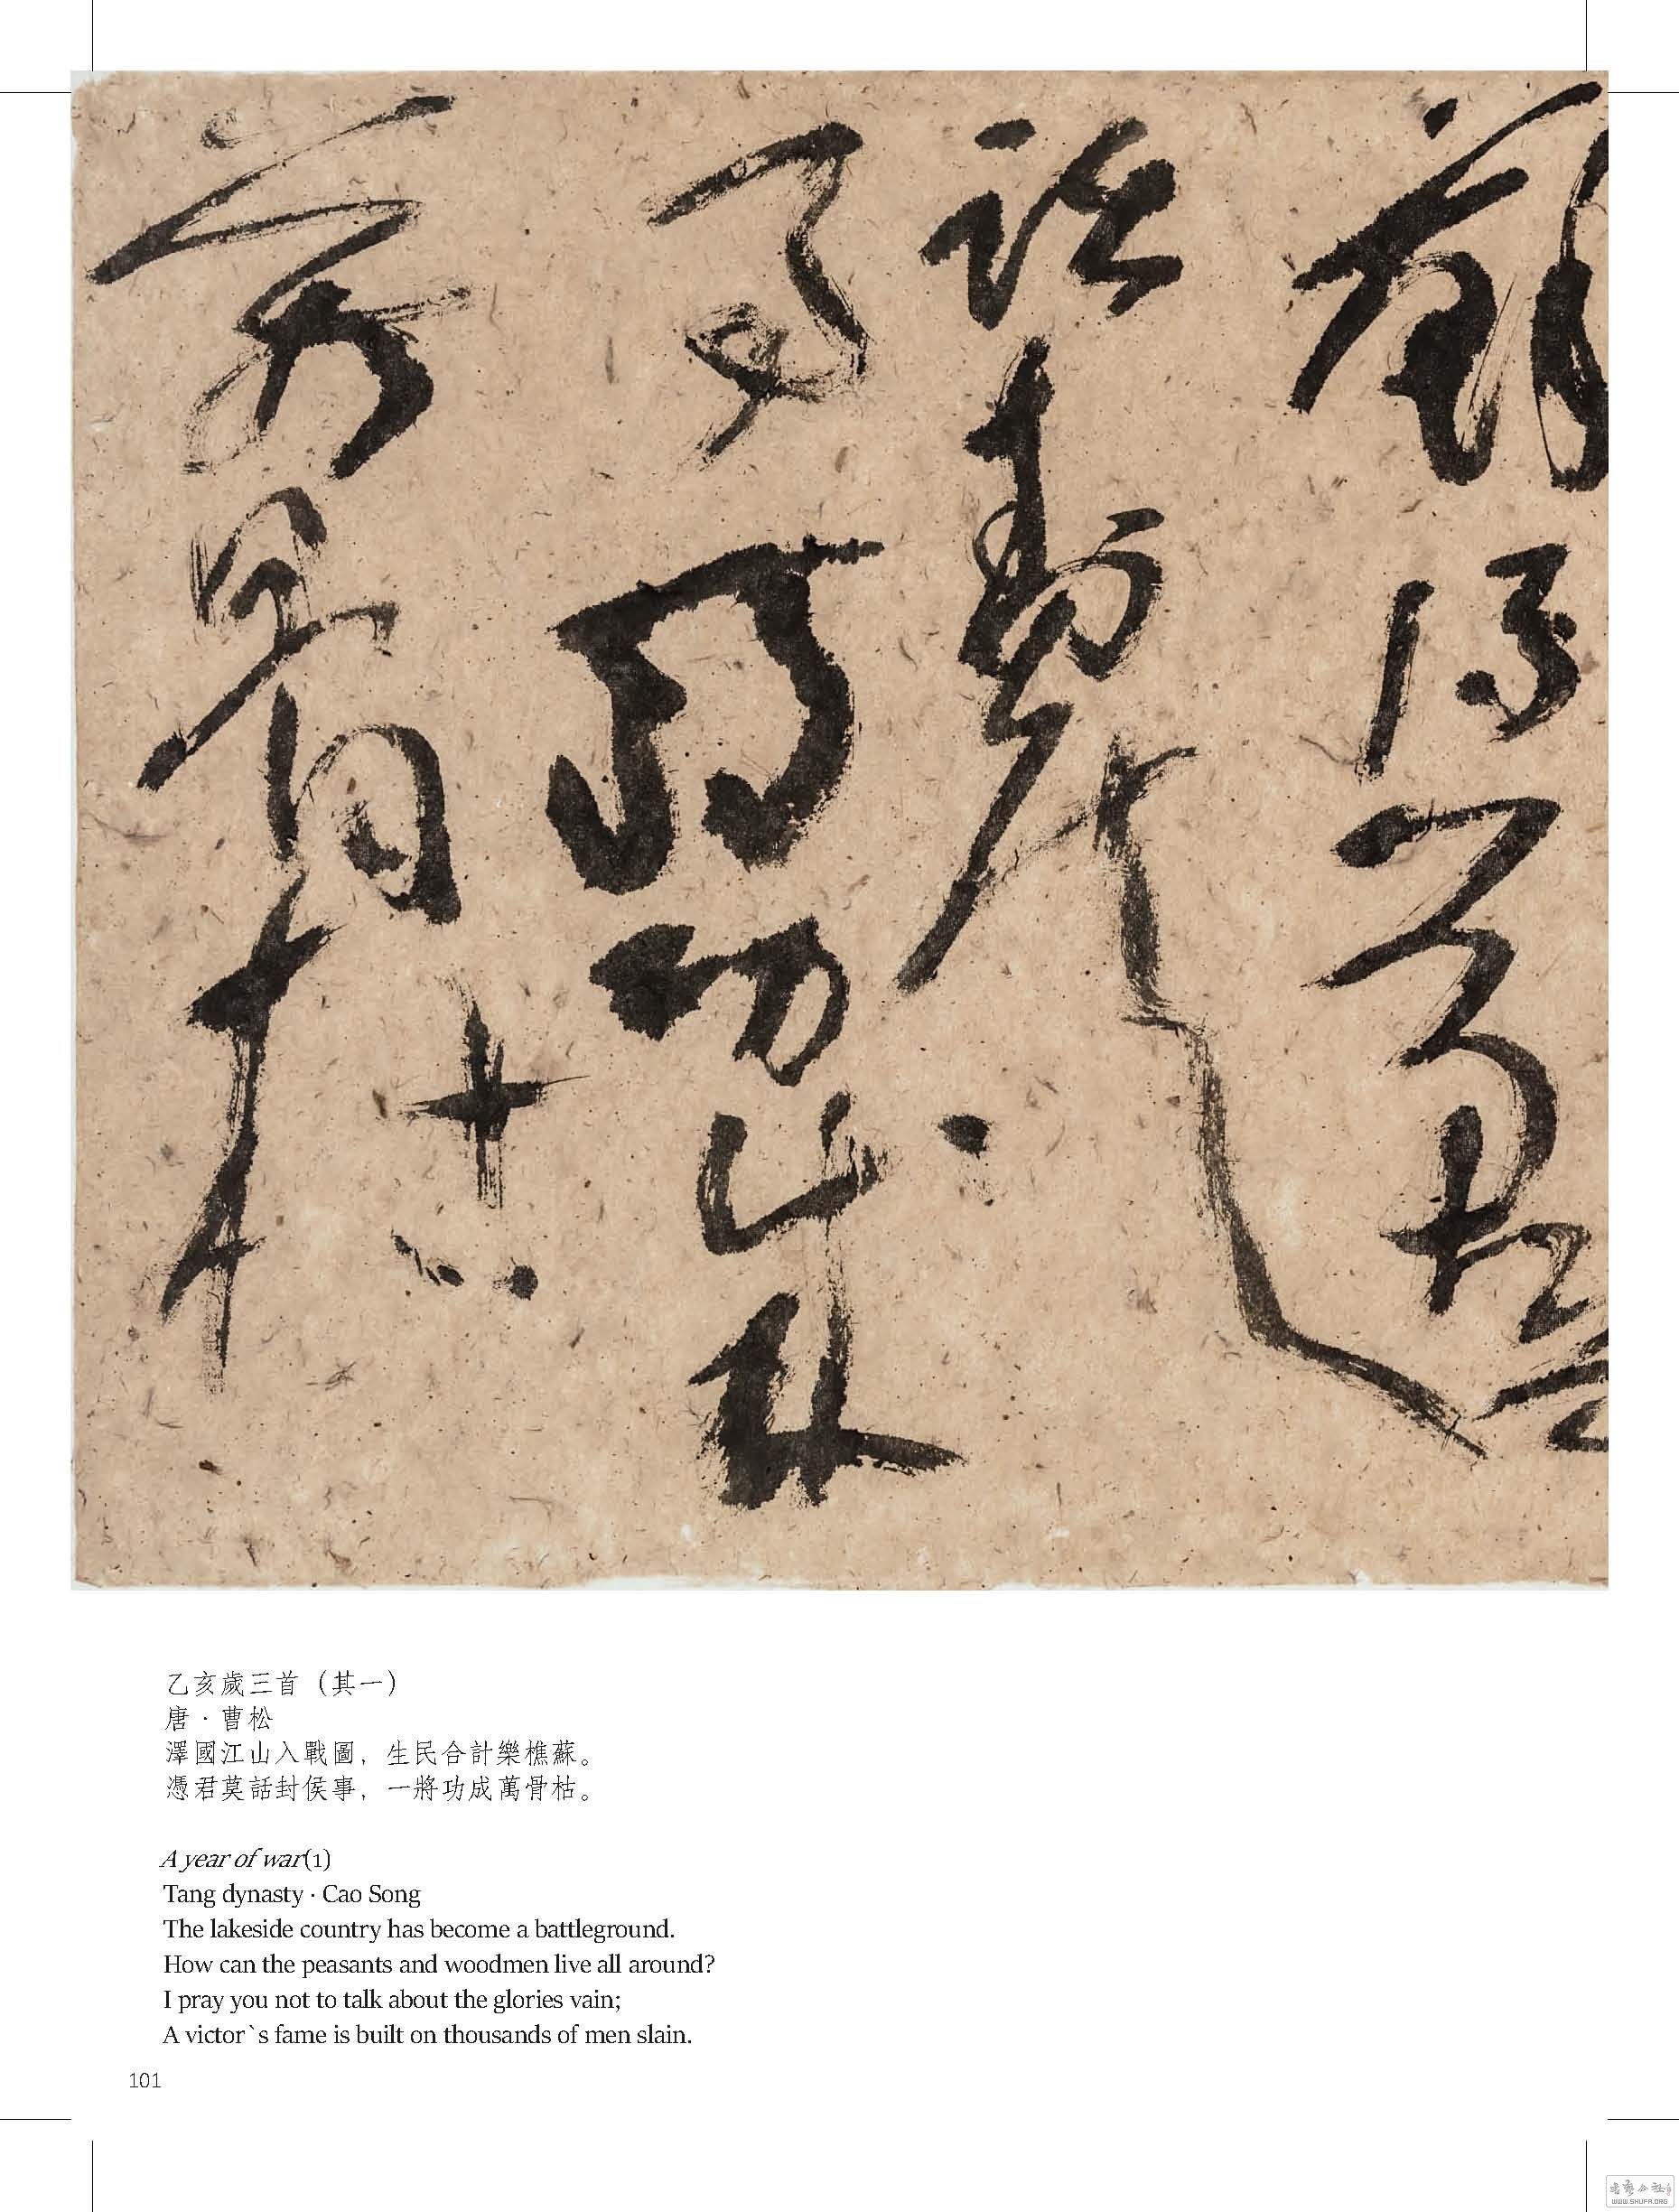 蘇憑君莫
話封侯
事一將功成
萬骨枯
乙亥歲三首（其一）
唐·曹松
澤國江山入戰圖，生民合計樂樵蘇。
憑君莫話封侯事，一將功成萬骨枯。
A year of war(1)
Tang dynasty · Cao Song
The lakeside country has become a battleground.
How can the peasants and woodmen live all around?
I pray you not to talk about the glories vain;
A victor`s fame is built on thousands of men slain.
101
WWW.SHUFA.ORG